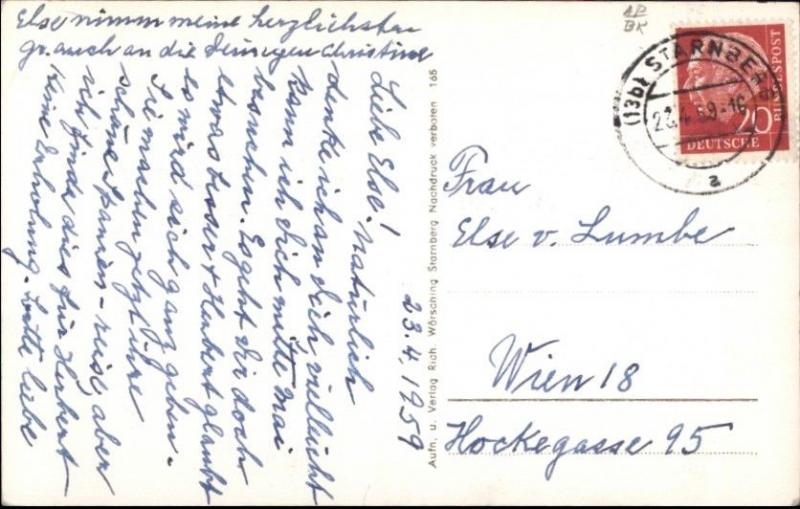 Liebe Else! Natürlich
denke ich an dich vielleicht
kann ich dich mitte Mai
besuchen. Es geht dir doch
etwas besser & Herbert glaubt
es wird sich ganz geben.
Sie machen jetzt ihre
schöne Spanien-reise, aber
ich finde dies für Herbert
keine Erholung. bitte liebe
Else nimm meine herzlichsten
gr. auch an die Deinigen Christine
23.4.1959
Aufn. u. Verlag Rich. Wörsching Starnberg Nachdruck verboten 165
AP
BK
(13b) STARNBERG
a
20
DEUTSCHE
BUNDESPOST
Frau
Else v. Lumbe
Wien 18
Hockegasse 95